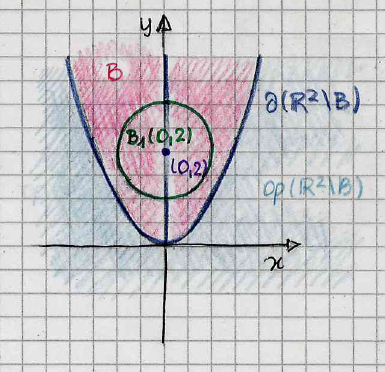 y
B
∂(ℝ²\B)
B₁(0,2)
(0,2)
op(ℝ²\B)
x